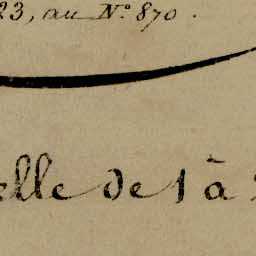 23, au N.o 870.
elle de 1 à